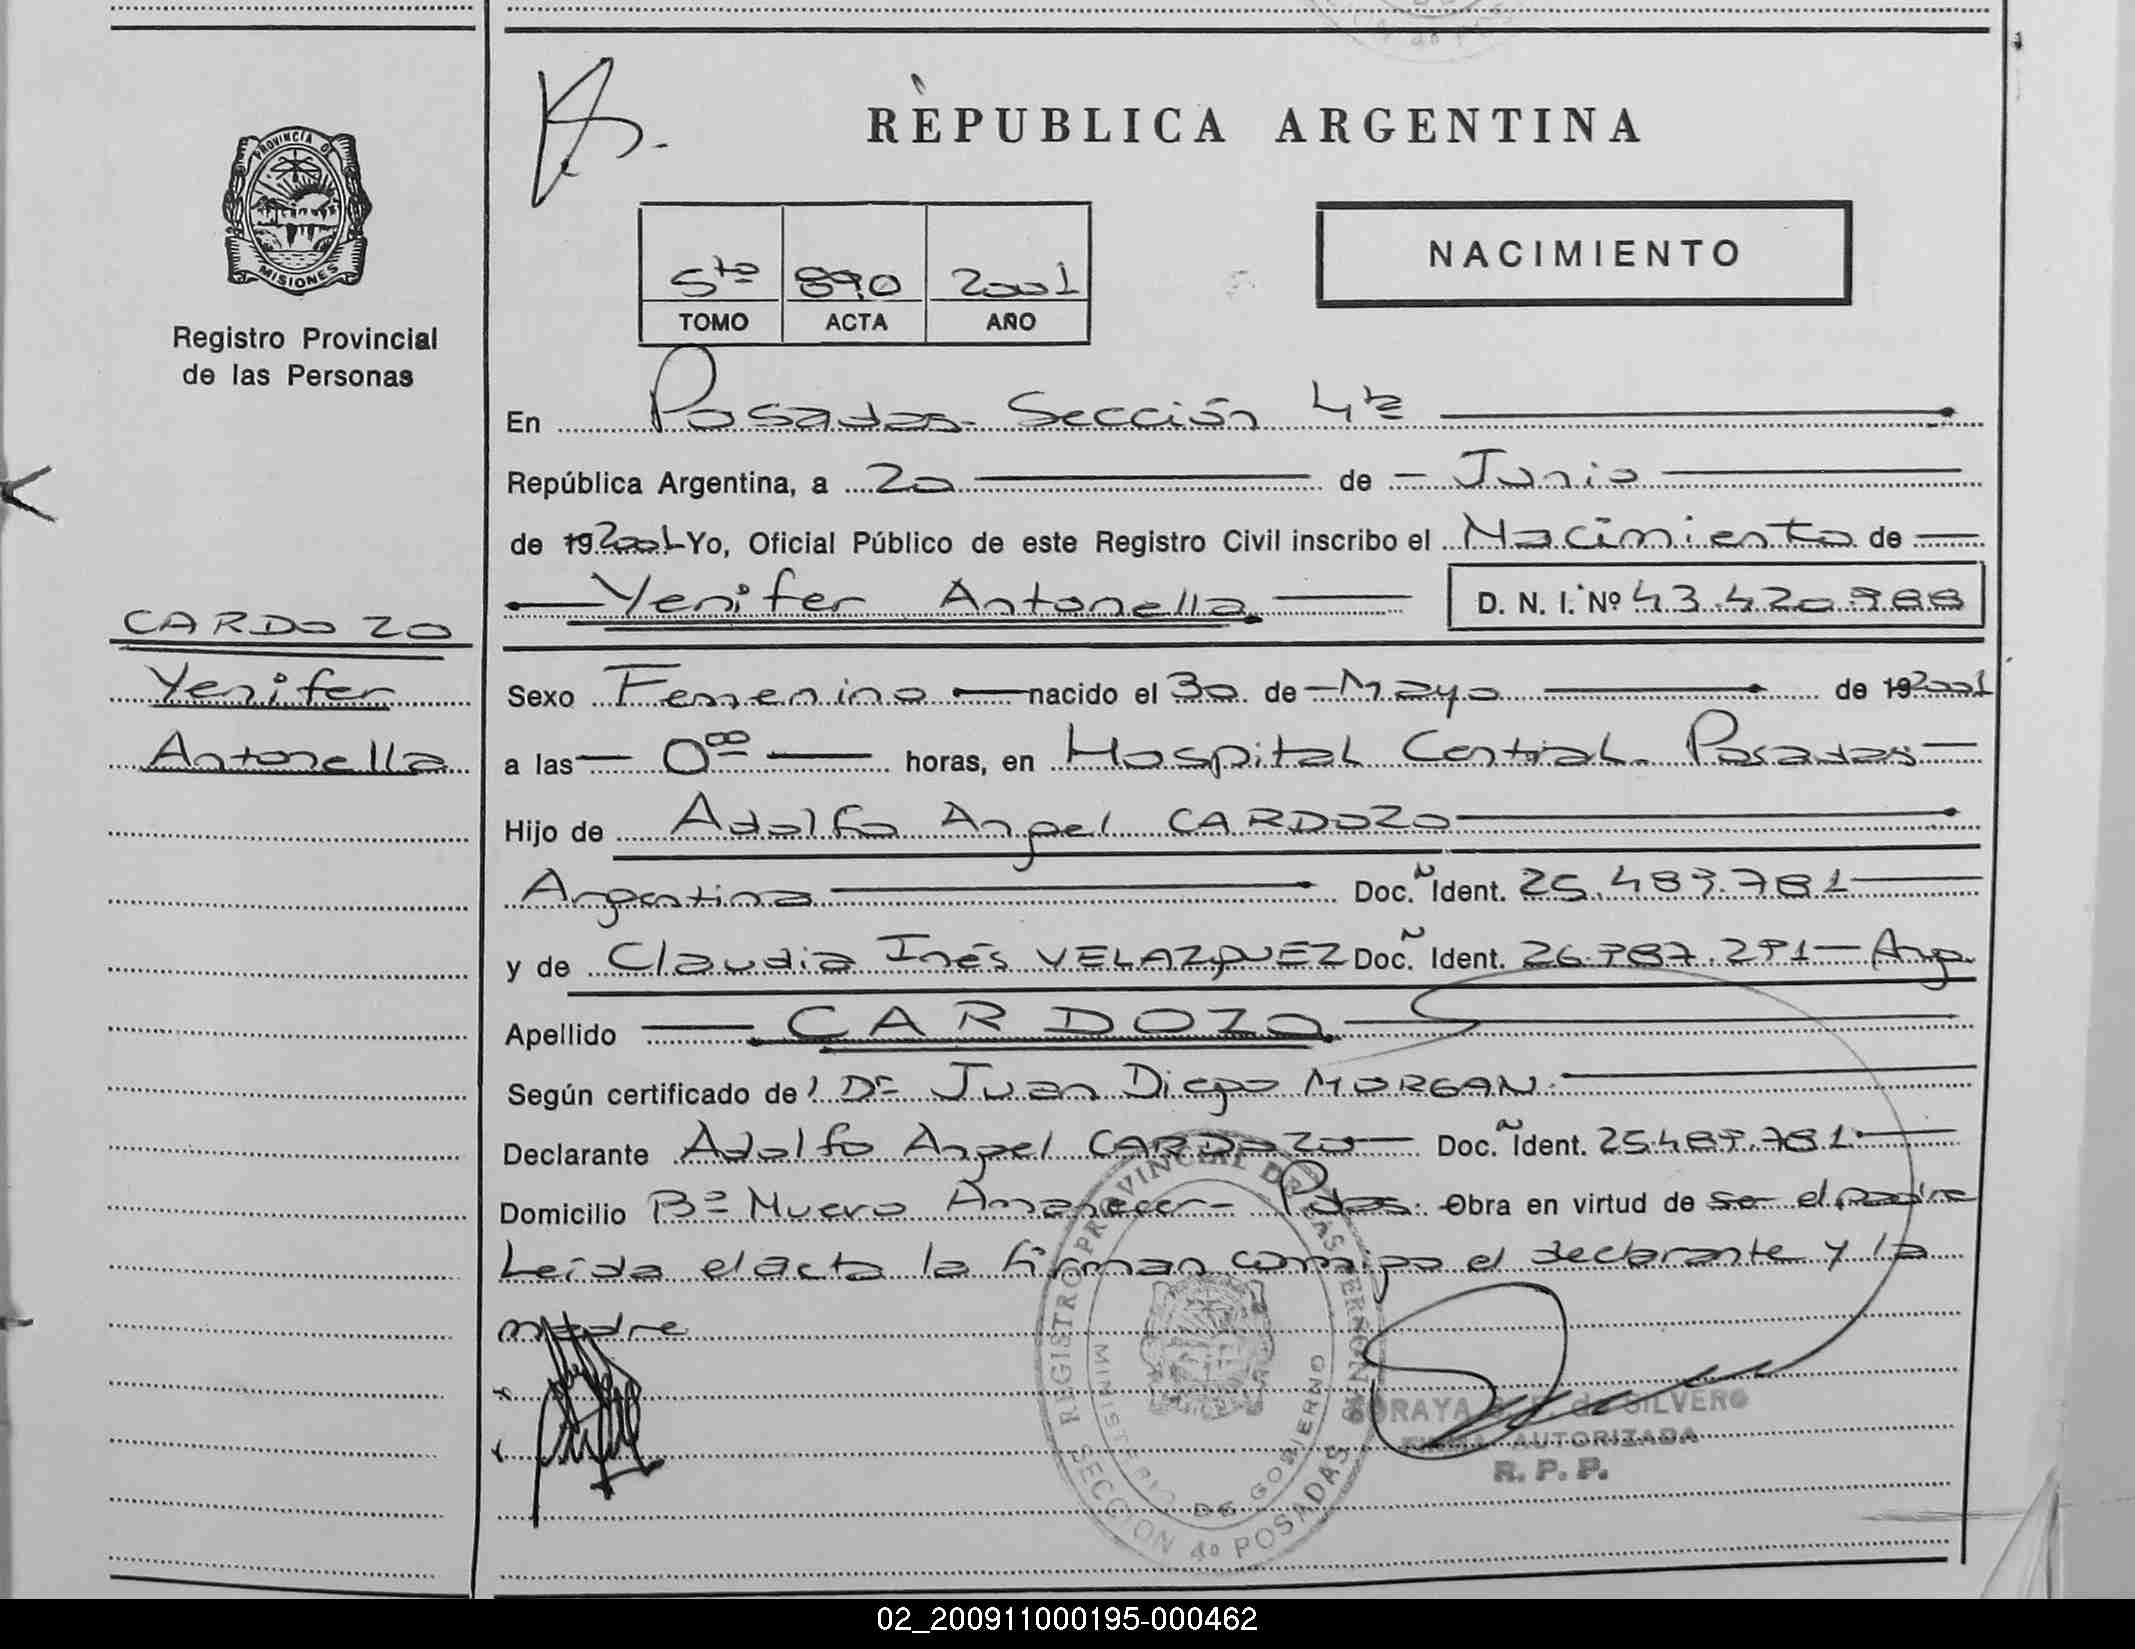 REPUBLICA ARGENTINA
PROVINCIA DE
MISIONES
Registro Provincial
de las Personas
NACIMIENTO
5to 890 2001
TOMO ACTA AÑO
En Posadas- Sección 4ta
República Argentina, a 20 de Junio
de 19 2001 Yo, Oficial Público de este Registro Civil inscribo el Nacimiento de
Yenifer Antonella D. N. I. Nº 43.420.988
CARDOZO
Yenifer
Antonella
Sexo Femenino nacido el 30 de Mayo de 19 2001
a las 0 00 horas, en Hospital Central. Posadas
Hijo de Adolfo Angel CARDOZO
Argentina Doc. Ident. 25.489.781
y de Claudia Inés VELAZQUEZ Doc. Ident. 26.787.291 Arg.
Apellido CARDOZO
Según certificado de Dr Juan Diego MORGAN.
Declarante Adolfo Angel CARDOZO Doc. Ident. 25.489.781
Domicilio Bº Nuevo Amanecer - Pdas. Obra en virtud de se el padre
Leída el acta la firman conmigo el declarante y la
madre
REGISTRO PROVINCIAL DE LAS PERSONAS
MINISTERIO DE GOBIERNO
SECCION 4º POSADAS
SORAYA de SILVERO
FIRMA AUTORIZADA
R. P. P.
02_200911000195-000462